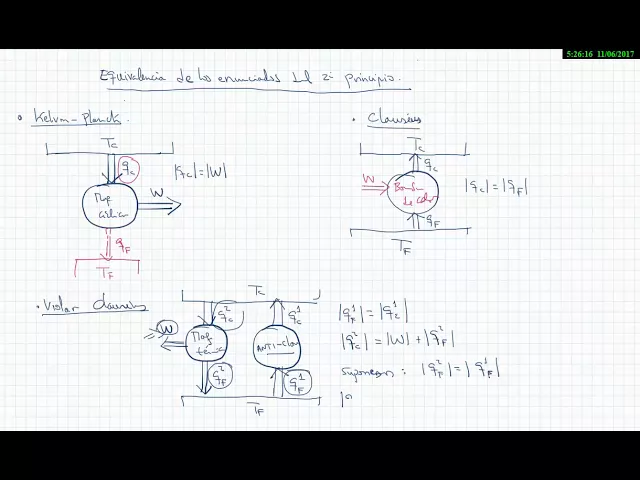 5:26:16 11/06/2017
Equivalencia de los enunciados del 2º principio.
• Kelvin-Planck.
T_C
q_C
|q_C|=|W|
Maq cíclica
W
q_F
T_F
• Clausius
T_C
q_C
W
Bomba de calor
|q_C|=|q_F|
q_F
T_F
• Violar Clausius
T_C
q_C^2
q_C^1
W
Maq térmica
ANTI-Clau
q_F^2
q_F^1
T_F
|q_F^1|=|q_C^1|
|q_C^2|=|W|+|q_F^2|
Suponemos: |q_F^2|=|q_F^1|